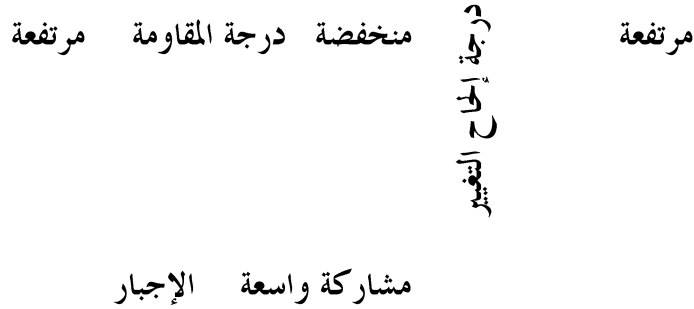 مرتفعة
درجة إلحاح التغيير
منخفضة درجة المقاومة مرتفعة
مشاركة واسعة الإجبار